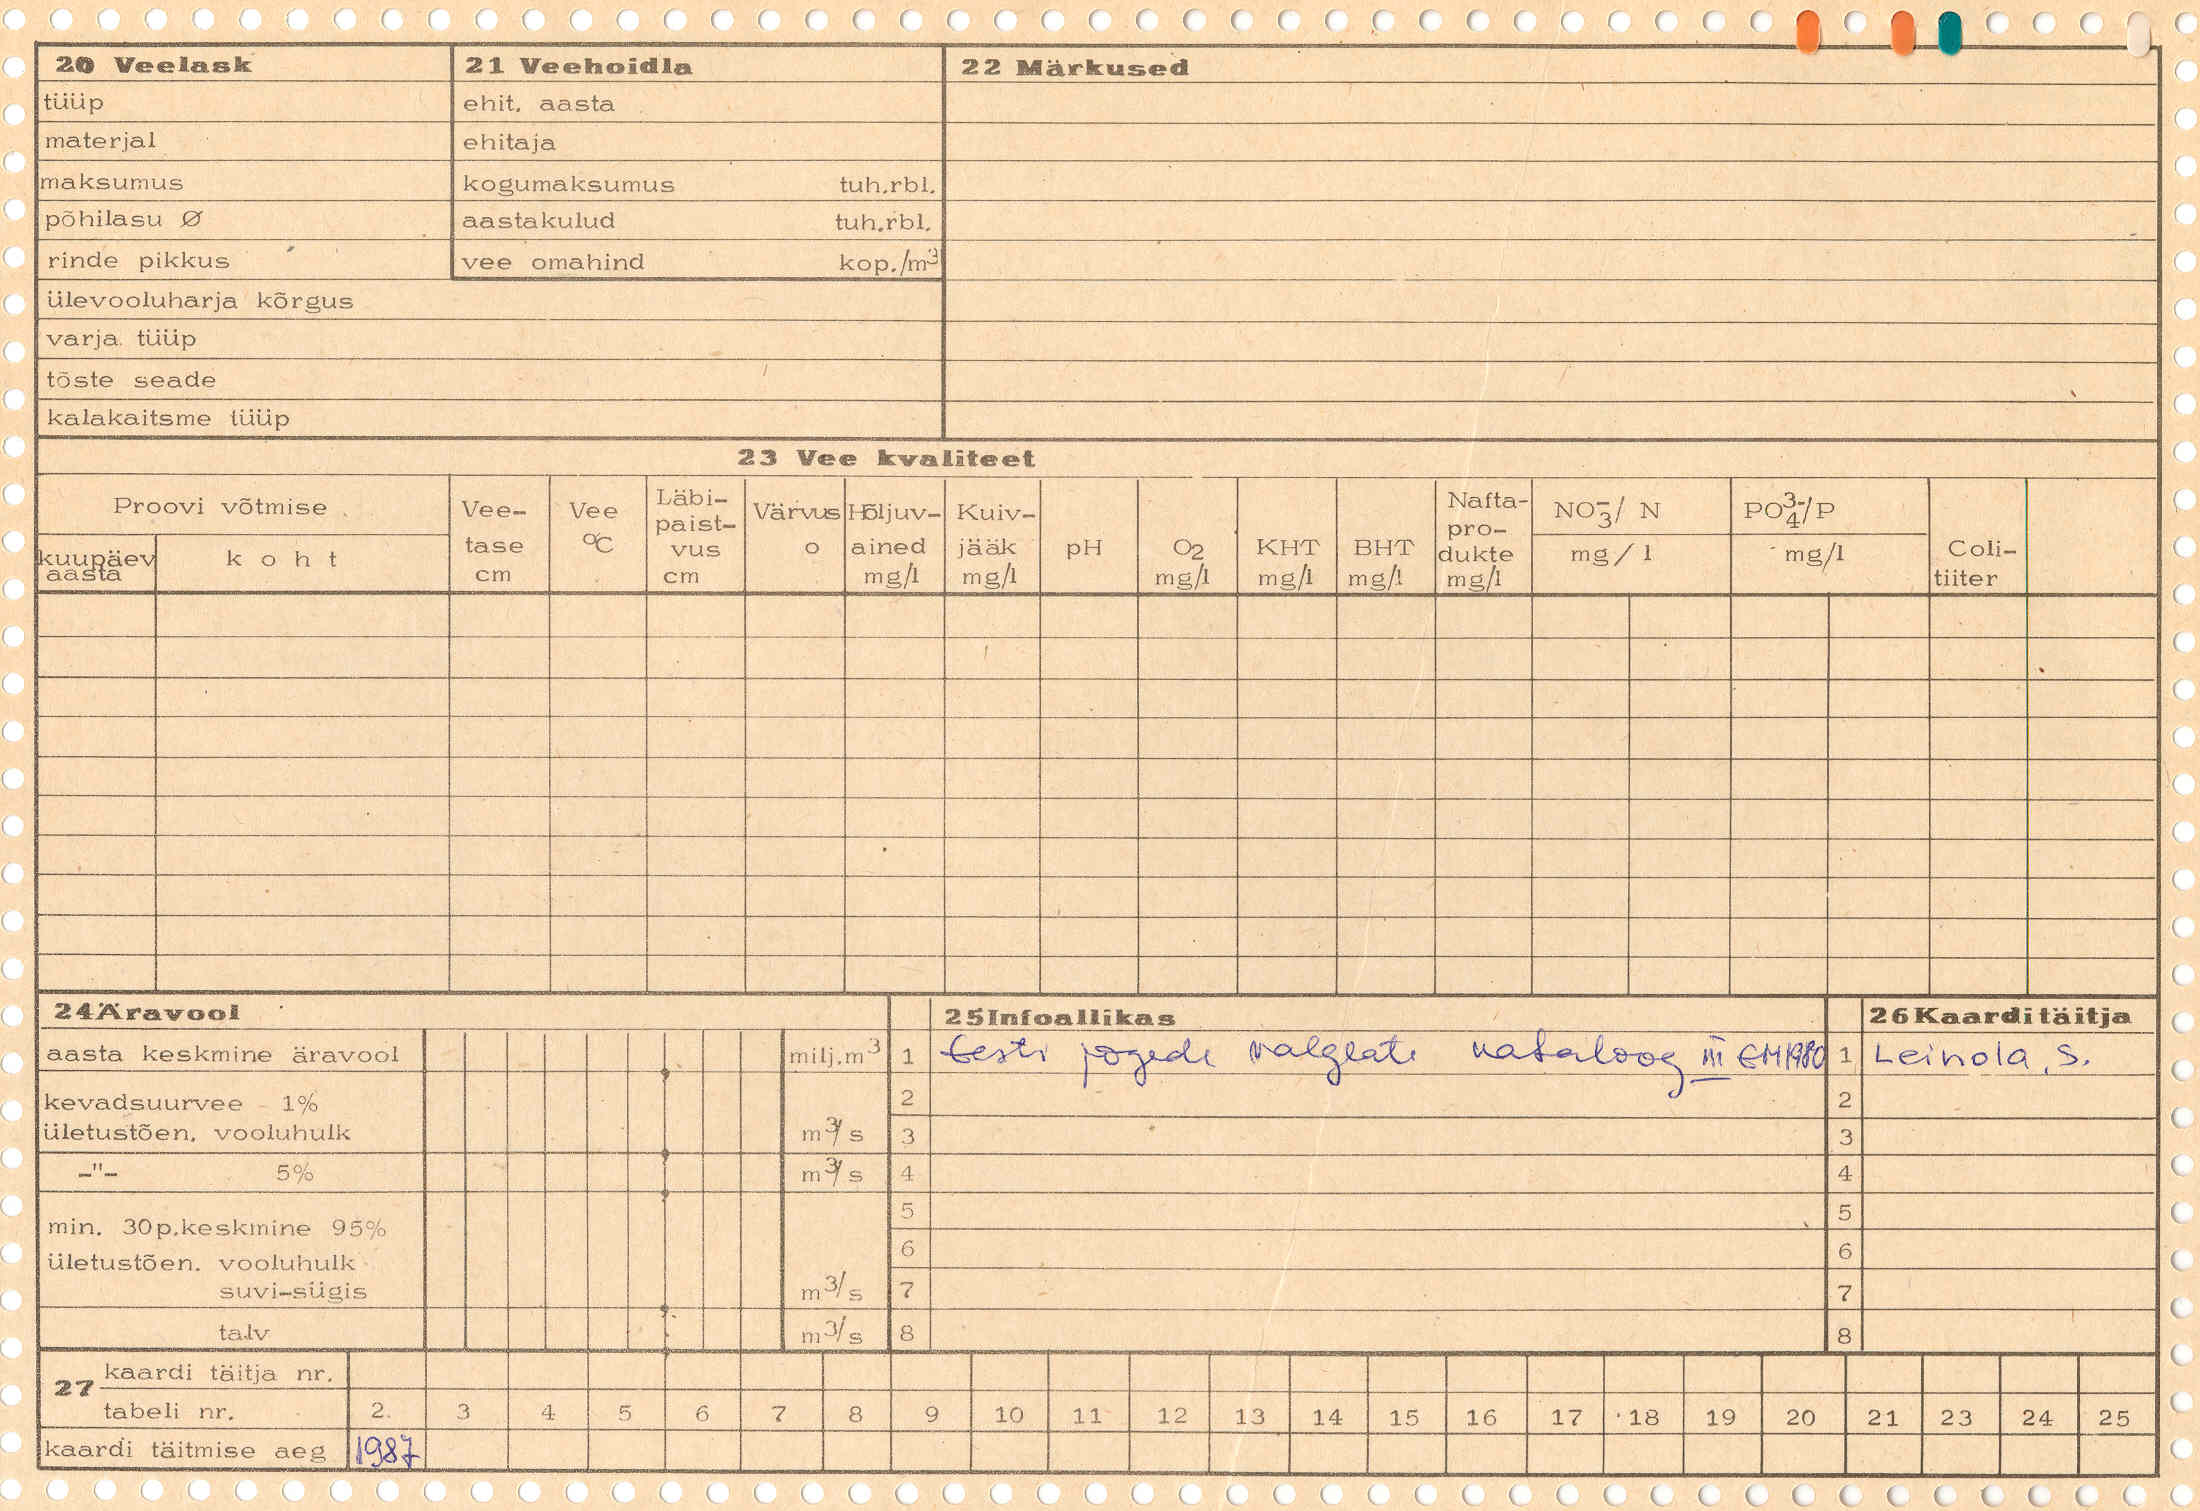 20 Veelask
tüüp
materjal
maksumus
põhilasu Ø
rinde pikkus
ülevooluharja kõrgus
varja tüüp
tõste seade
kalakaitsme tüüp
21 Veehoidla
ehit. aasta
ehitaja
kogumaksumus tuh.rbl.
aastakulud tuh.rbl.
vee omahind kop./m³
22 Märkused
23 Vee kvaliteet
Proovi võtmise
kuupäev
aasta
koht
Vee-
tase
cm
Vee
°C
Läbi-
paist-
vus
cm
Värvus
o
Hõljuv-
ained
mg/l
Kuiv-
jääk
mg/l
pH
O₂
mg/l
KHT
mg/l
BHT
mg/l
Nafta-
pro-
dukte
mg/l
NO₃⁻/ N
mg/l
PO₄³⁻/P
mg/l
Coli-
tiiter
24 Äravool
aasta keskmine äravool milj.m³
kevadsuurvee 1%
ületustõen. vooluhulk m³/s
-"- 5% m³/s
min. 30p.keskmine 95%
ületustõen. vooluhulk
suvi-sügis m³/s
talv m³/s
25 Infoallikas
1 Eesti jõgede valglate kataloog III EM 1980
2
3
4
5
6
7
8
26 Kaardi täitja
1 Leinola, S.
2
3
4
5
6
7
8
27
kaardi täitja nr.
tabeli nr. 2. 3 4 5 6 7 8 9 10 11 12 13 14 15 16 17 18 19 20 21 23 24 25
kaardi täitmise aeg 1987